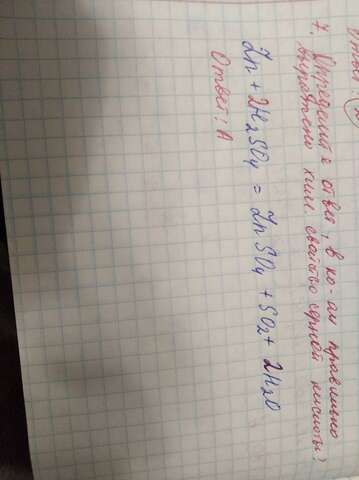 7. Определите ответ, в ко-ом правильно
выражено хим. свойство серной кислоты?
Zn + 2H₂SO₄ = ZnSO₄ + SO₂ + 2H₂O
Ответ: А